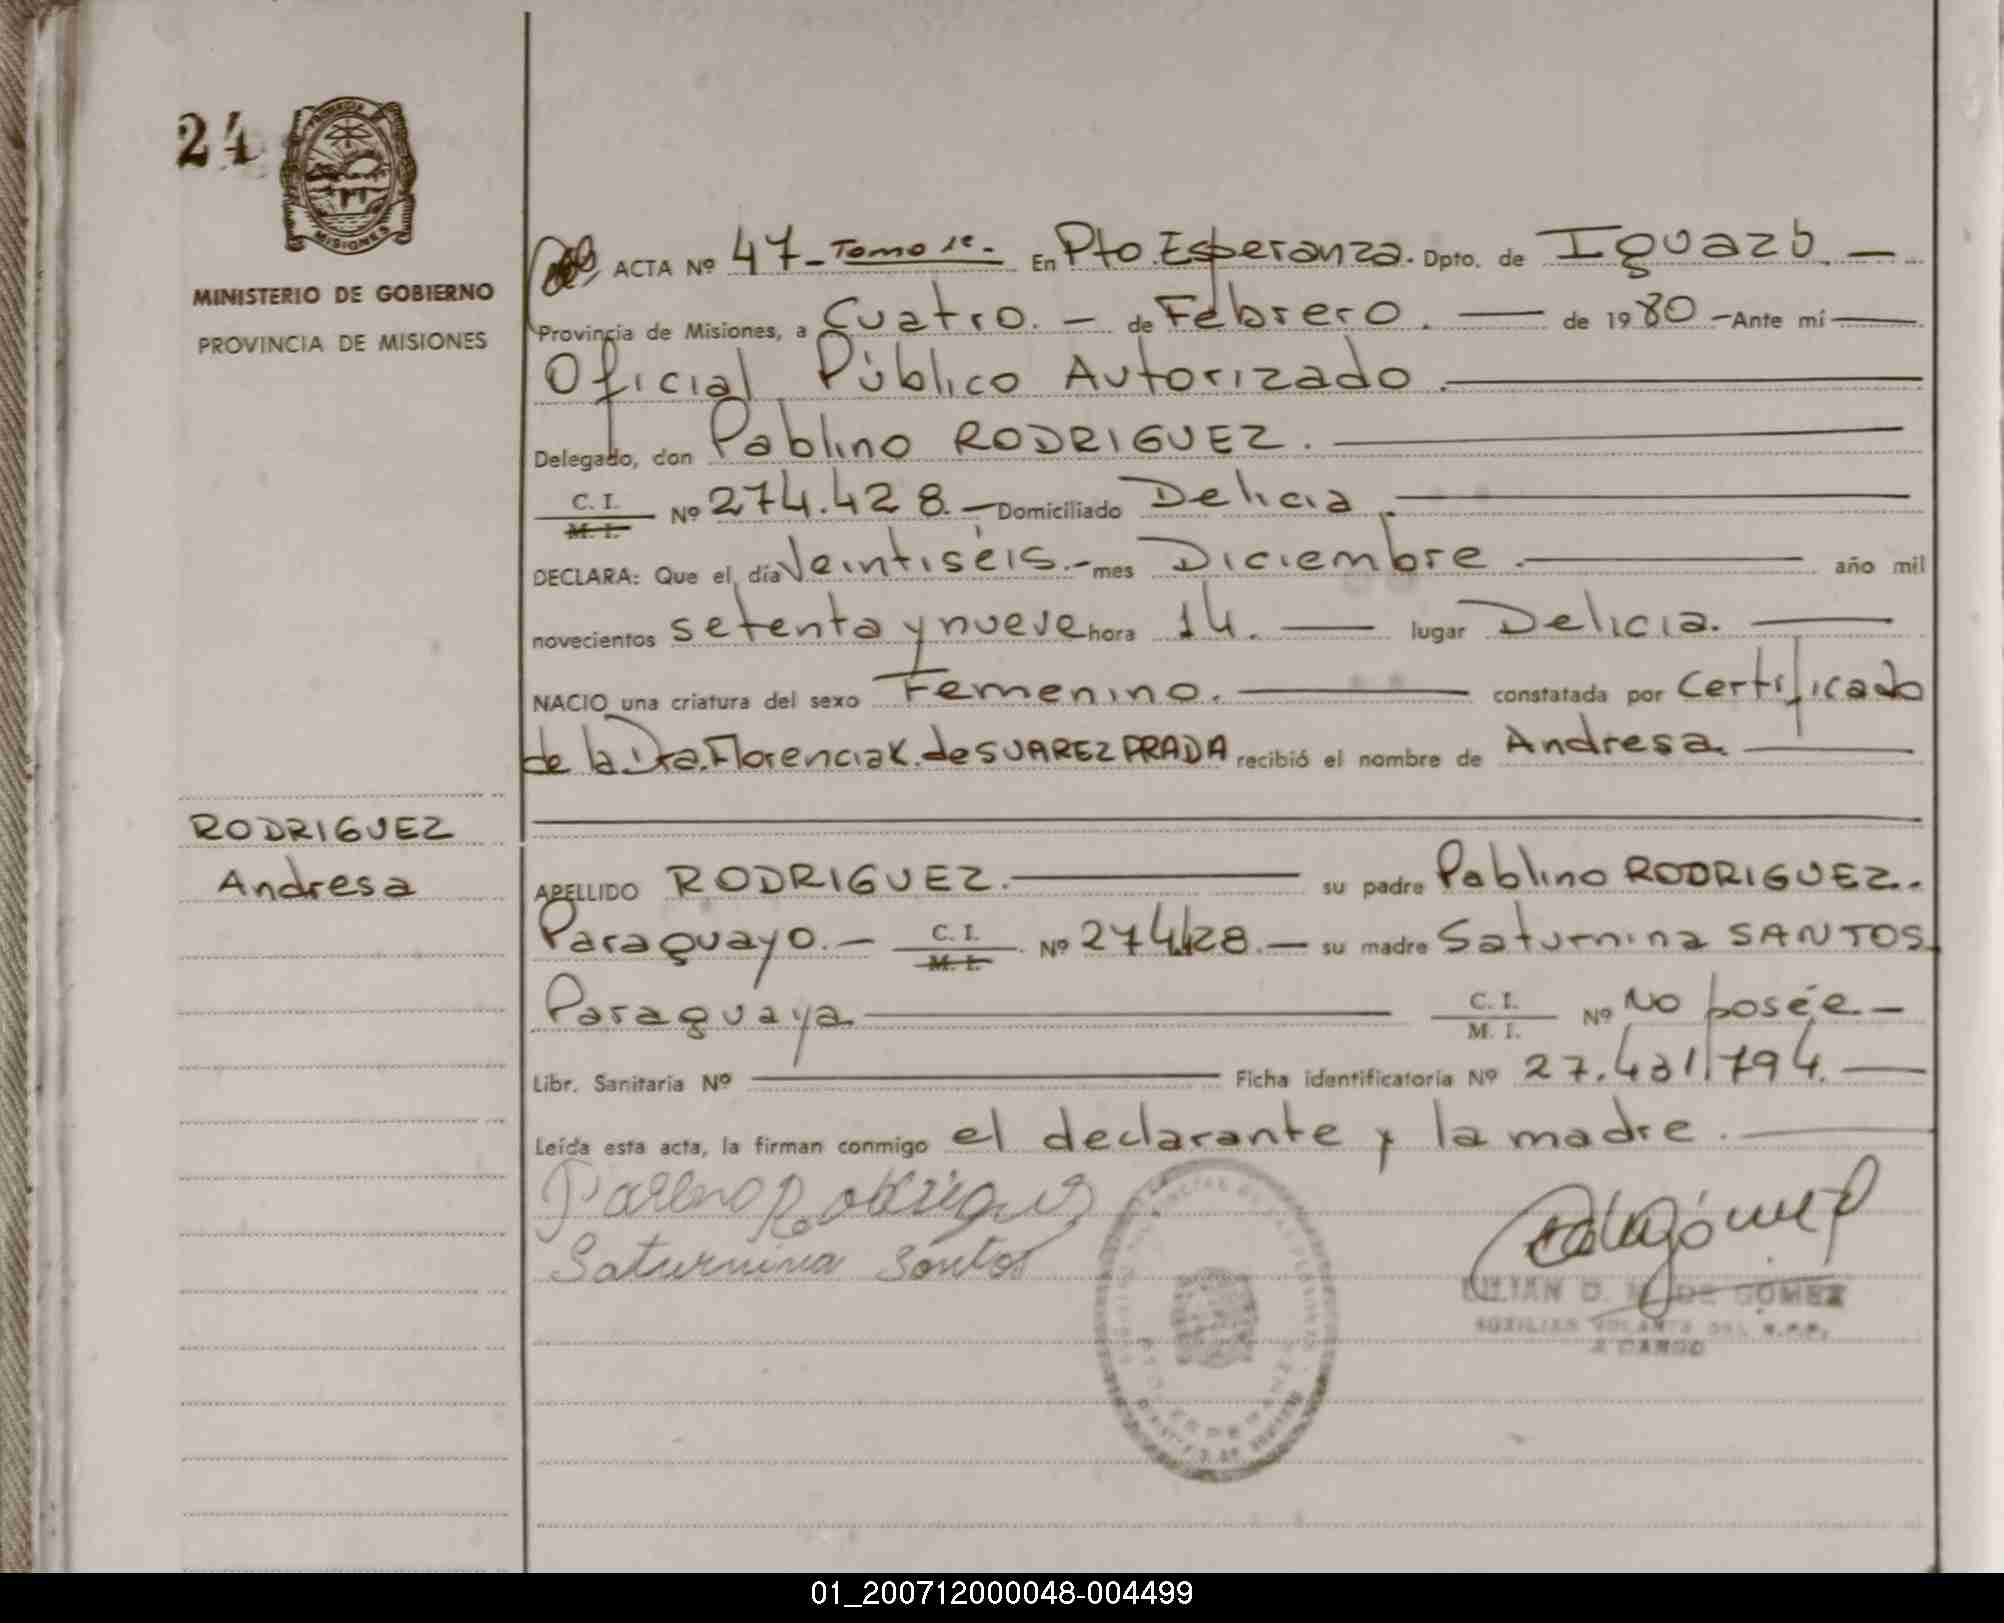 24
MISIONES
MINISTERIO DE GOBIERNO
PROVINCIA DE MISIONES
ACTA Nº 47-Tomo 1º- En Pto. Esperanza. Dpto. de Iguazú.—
Provincia de Misiones, a Cuatro. - de Febrero. — de 1980.- Ante mí —
Oficial Público Autorizado.
Delegado, don Pablino RODRIGUEZ.
C. I. / M. I. Nº 274.428.- Domiciliado Delicia.
DECLARA: Que el día Veintiséis.- mes Diciembre. — año mil
novecientos setenta y nueve hora 14. — lugar Delicia. —
NACIO una criatura del sexo Femenino. — constatada por Certificado
de la Dra. Florencia K. de SUAREZ PRADA recibió el nombre de Andresa. —
RODRIGUEZ
Andresa
APELLIDO RODRIGUEZ. — su padre Pablino RODRIGUEZ.
Paraguayo.- C. I. / M. I. Nº 274428.- su madre Saturnina SANTOS
Paraguaya — C. I. / M. I. Nº No posée.-
Libr. Sanitaria Nº — Ficha identificatoria Nº 27.431.794. —
Leída esta acta, la firman conmigo el declarante y la madre. —
Saturnina Santos
LILIAN D. DE GOMEZ
AUXILIAR VOLANTE DEL R.P.P.
A CARGO
01_200712000048-004499